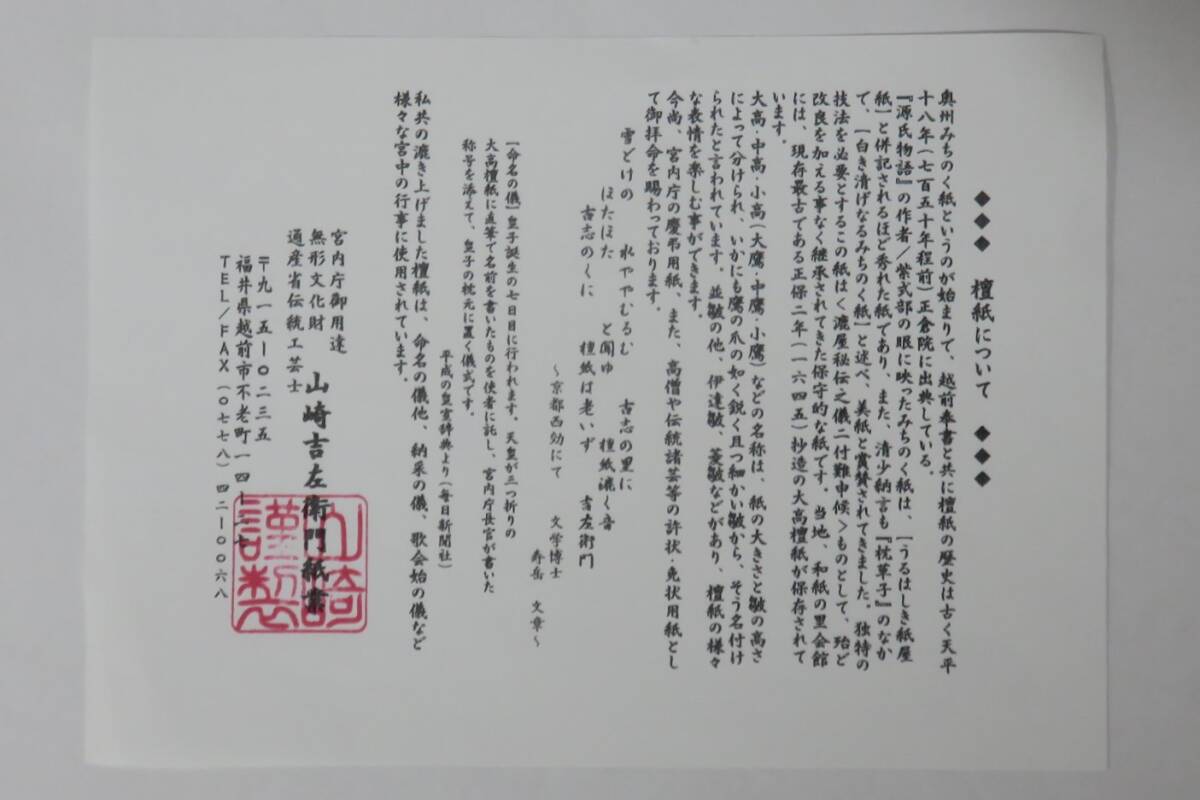 ◆◆◆ 檀紙について ◆◆◆
奥州みちのく紙というのが始まりで、越前奉書と共に檀紙の歴史は古く天平
十八年(七百五十年程前)正倉院に出典している。
『源氏物語』の作者/紫式部の眼に映ったみちのく紙は、「うるはしき紙屋
紙」と併記されるほど秀れた紙であり、また、清少納言も『枕草子』のなか
で、「白き清げなるみちのく紙」と述べ、美紙と賞賛されてきました。独特の
技法を必要とするこの紙は<漉屋秘伝之儀ニ付難申候>ものとして、殆ど
改良を加える事なく継承されてきた保守的な紙です。当地、和紙の里会館
には、現存最古である正保二年(一六四五)抄造の大高檀紙が保存されて
います。
大高・中高・小高(大鷹・中鷹・小鷹)などの名称は、紙の大きさと皺の高さ
によって分けられ、いかにも鷹の爪の如く鋭く且つ細かい皺から、そう名付け
られたと言われています。並皺の他、伊達皺、菱皺などがあり、檀紙の様々
な表情を楽しむ事ができます。
今尚、宮内庁の慶弔用紙、また、高僧や伝統諸芸等の許状・免状用紙とし
て御拝命を賜わっております。
雪どけの 水ややむるむ 古志の里に
ほたほた と聞ゆ 檀紙漉く音
古志のくに 檀紙は老いず 吉左衛門
~京都西効にて 文学博士
寿岳 文章~
「命名の儀」皇子誕生の七日目に行われます。天皇が三つ折りの
大高檀紙に直筆で名前を書いたものを使者に託し、宮内庁長官が書いた
称号を添えて、皇子の枕元に置く儀式です。
平成の皇室辞典より(毎日新聞社)
私共の漉き上げました檀紙は、命名の儀他、納采の儀、歌会始の儀など
様々な宮中の行事に使用されています。
宮内庁御用達
無形文化財 山崎吉左衛門紙業
通産省伝統工芸士
〒九一五-〇二三五
福井県越前市不老町一四-二七
TEL/FAX(〇七七八)四二-〇〇六八
山崎
謹製